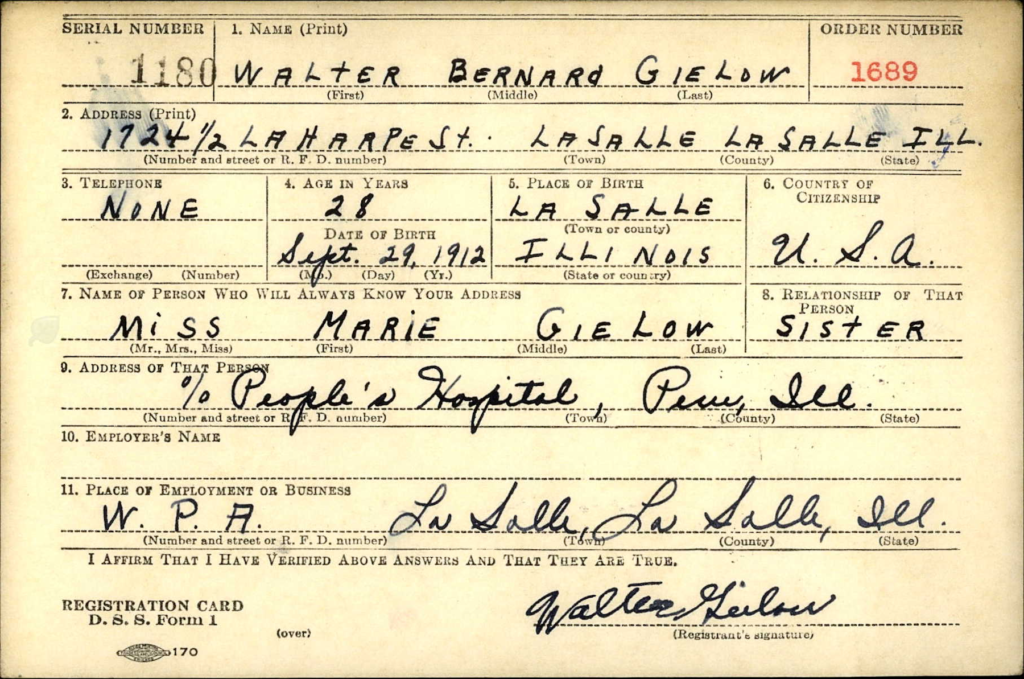 SERIAL NUMBER 1. NAME (Print) ORDER NUMBER
1180 WALTER BERNARD GIELOW 1689
(First) (Middle) (Last)
2. ADDRESS (Print)
1724 1/2 LAHARPE St. LASALLE LASALLE ILL.
(Number and street or R. F. D. number) (Town) (County) (State)
3. TELEPHONE 4. AGE IN YEARS 5. PLACE OF BIRTH 6. COUNTRY OF CITIZENSHIP
NONE 28 LA SALLE
DATE OF BIRTH (Town or county)
Sept. 29, 1912 ILLINOIS U. S. A.
(Exchange) (Number) (Mo.) (Day) (Yr.) (State or country)
7. NAME OF PERSON WHO WILL ALWAYS KNOW YOUR ADDRESS 8. RELATIONSHIP OF THAT PERSON
MISS MARIE GIELOW SISTER
(Mr., Mrs., Miss) (First) (Middle) (Last)
9. ADDRESS OF THAT PERSON
% People's Hospital, Peru, Ill.
(Number and street or R. F. D. number) (Town) (County) (State)
10. EMPLOYER'S NAME
11. PLACE OF EMPLOYMENT OR BUSINESS
W. P. A. La Salle, La Salle, Ill.
(Number and street or R. F. D. number) (Town) (County) (State)
I AFFIRM THAT I HAVE VERIFIED ABOVE ANSWERS AND THAT THEY ARE TRUE.
REGISTRATION CARD Walter Gielow
D. S. S. Form 1 (Registrant's signature)
(over)
170